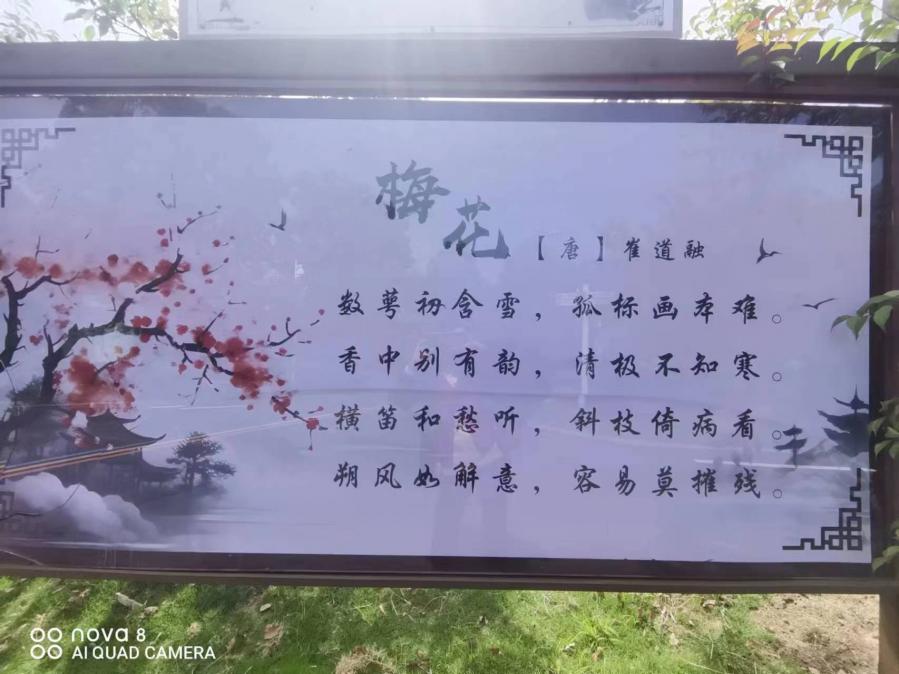 梅花
【唐】崔道融
数萼初含雪，孤标画本难。
香中别有韵，清极不知寒。
横笛和愁听，斜枝倚病看。
朔风如解意，容易莫摧残。
nova 8
AI QUAD CAMERA